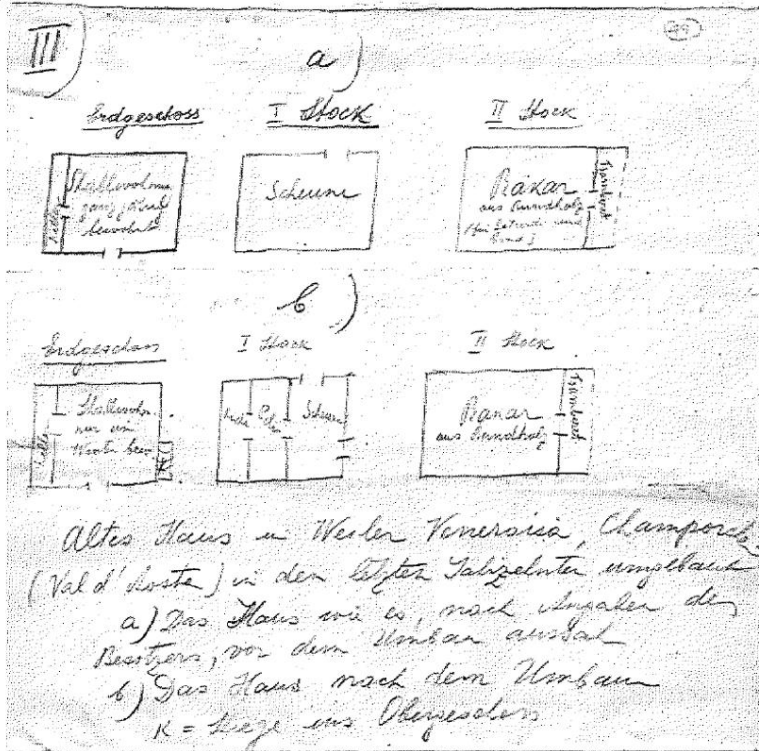 III)
99
a)
Erdgeschoss I Stock II Stock
Keller
Stallwohnung
ganzjährig
bewohnt
Scheune
Rakar
aus Rundholz
(für Getreide und
b)
Erdgeschoss I Stock II Stock
Keller
nur im
Winter bew.
K
Scheune
Rakar
aus Rundholz
Altes Haus in Weiler Champorcher
(Val d'Aosta) in den letzten Jahrzehnten umgebaut
a) Das Haus wie es, nach Angaben des
Besitzers, vor dem Umbau aussah
b) Das Haus nach dem Umbau
K = Stiege ins Obergeschoss